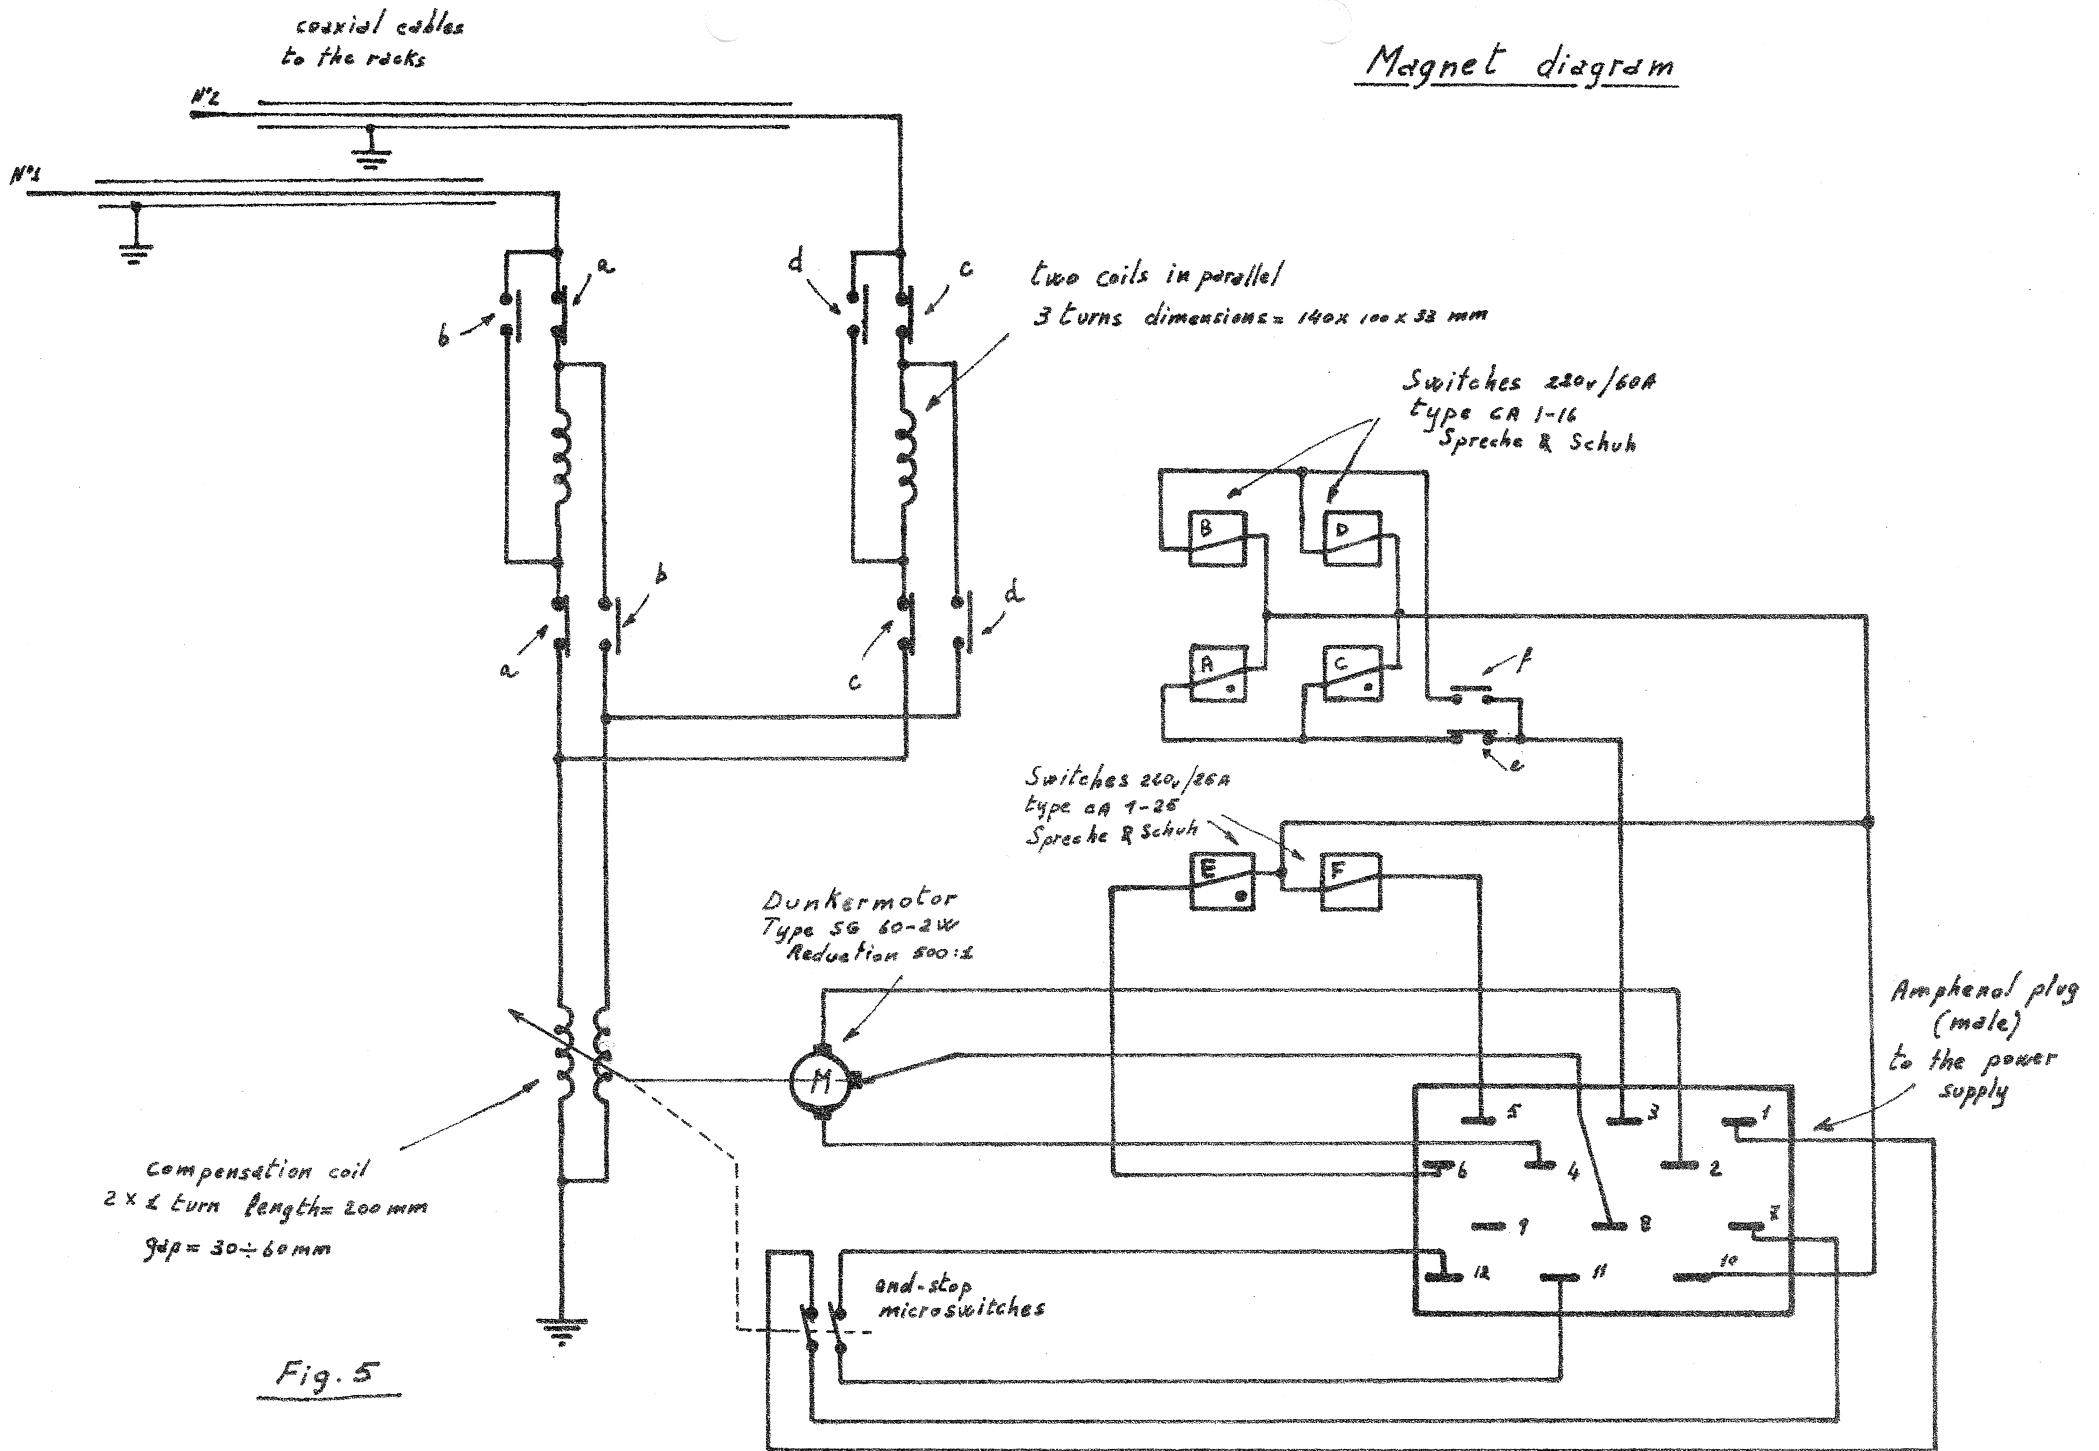 coaxial cables
to the racks
Magnet diagram
N°2
N°1
a
b
d
c
two coils in parallel
3 turns dimensions = 140 x 100 x 33 mm
Switches 220v/60A
type CA 1-16
Spreche & Schuh
B
D
b
d
a
c
A
C
f
e
Switches 220v/25A
type CA 1-25
Spreche & Schuh
E
F
Dunkermotor
Type SG 60-2W
Reduction 500:1
M
Amphenol plug
(male)
to the power
supply
5
3
1
6
4
2
9
8
7
12
11
10
Compensation coil
2 x 1 turn length = 200 mm
gap = 30÷60 mm
end-stop
microswitches
Fig. 5